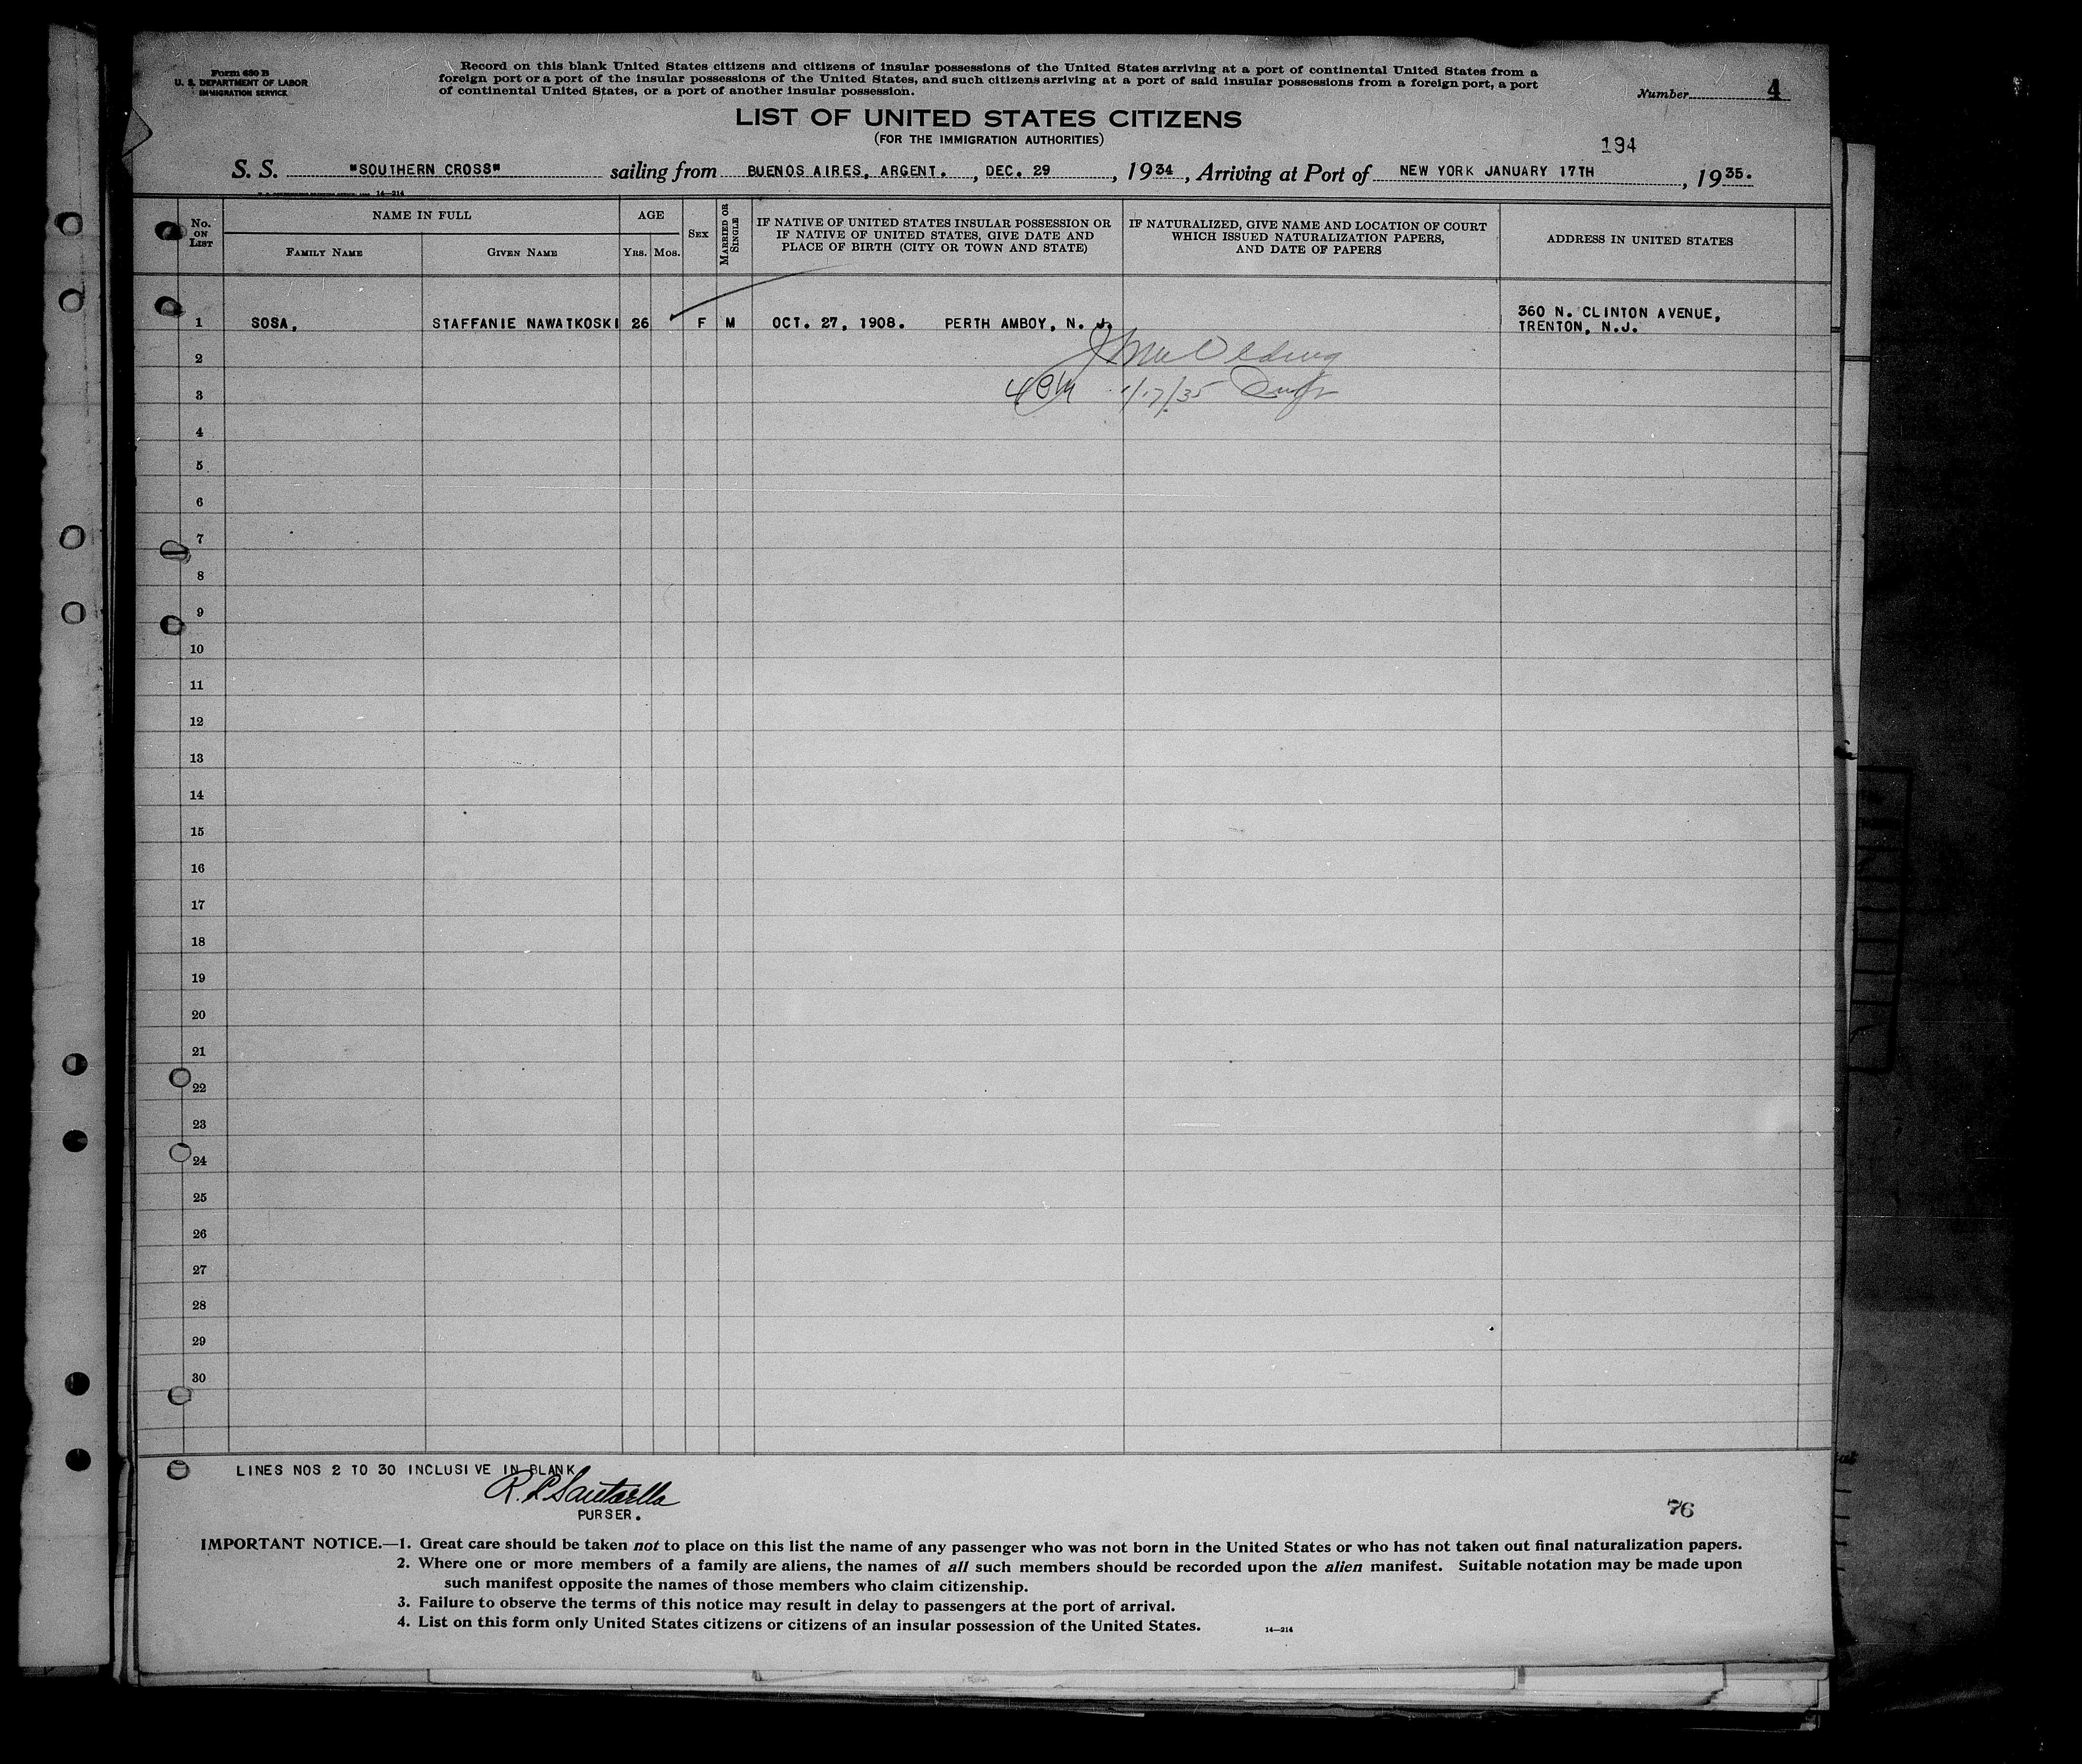 Form 630 B
U. S. DEPARTMENT OF LABOR
IMMIGRATION SERVICE
Record on this blank United States citizens and citizens of insular possessions of the United States arriving at a port of continental United States from a
foreign port or a port of the insular possessions of the United States, and such citizens arriving at a port of said insular possessions from a foreign port, a port
of continental United States, or a port of another insular possession.
Number 4
LIST OF UNITED STATES CITIZENS
(FOR THE IMMIGRATION AUTHORITIES)
194
S. S. "SOUTHERN CROSS" sailing from BUENOS AIRES, ARGENT. , DEC. 29 , 1934 , Arriving at Port of NEW YORK JANUARY 17TH , 1935.
14—214
No. ON LIST
NAME IN FULL
FAMILY NAME
GIVEN NAME
AGE
YRS. MOS.
SEX
MARRIED OR SINGLE
IF NATIVE OF UNITED STATES INSULAR POSSESSION OR
IF NATIVE OF UNITED STATES, GIVE DATE AND
PLACE OF BIRTH (CITY OR TOWN AND STATE)
IF NATURALIZED, GIVE NAME AND LOCATION OF COURT
WHICH ISSUED NATURALIZATION PAPERS,
AND DATE OF PAPERS
ADDRESS IN UNITED STATES
1 SOSA, STAFFANIE NAWATKOSKI 26 F M OCT. 27, 1908. PERTH AMBOY, N. J. 360 N. CLINTON AVENUE,
TRENTON, N.J.
2
3 1/17/35
4
5
6
7
8
9
10
11
12
13
14
15
16
17
18
19
20
21
22
23
24
25
26
27
28
29
30
LINES NOS 2 TO 30 INCLUSIVE IN BLANK
PURSER.
76
IMPORTANT NOTICE.—1. Great care should be taken not to place on this list the name of any passenger who was not born in the United States or who has not taken out final naturalization papers.
2. Where one or more members of a family are aliens, the names of all such members should be recorded upon the alien manifest. Suitable notation may be made upon
such manifest opposite the names of those members who claim citizenship.
3. Failure to observe the terms of this notice may result in delay to passengers at the port of arrival.
4. List on this form only United States citizens or citizens of an insular possession of the United States.
14—214